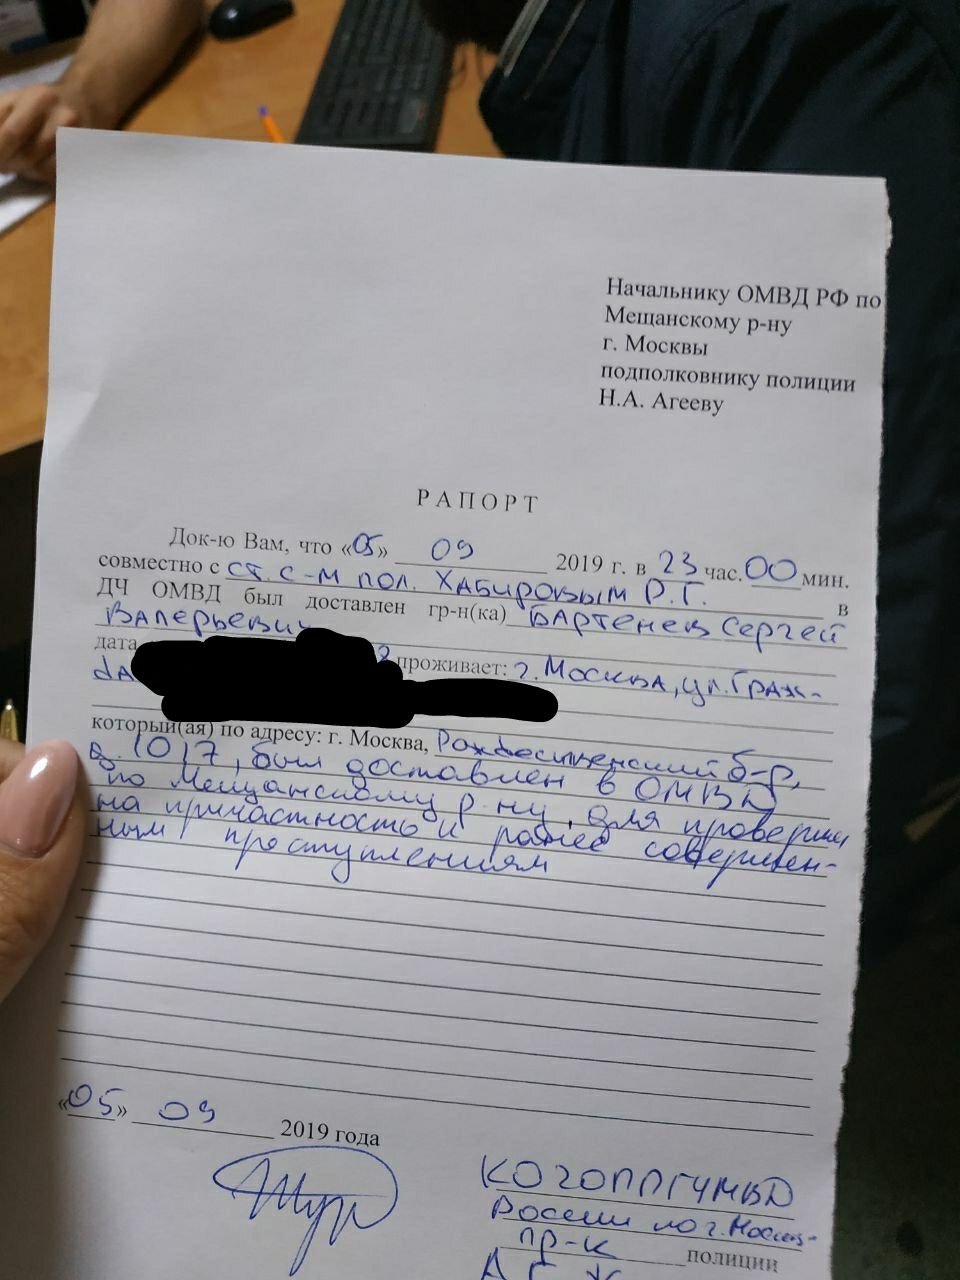 Начальнику ОМВД РФ по
Мещанскому р-ну
г. Москвы
подполковнику полиции
Н.А. Агееву
РАПОРТ
Док-ю Вам, что «05» 09 2019 г. в 23 час. 00 мин.
совместно с ст. с-м пол. Хабировым Р.Г. в
ДЧ ОМВД был доставлен гр-н(ка) Бартенев Сергей
Валерьевич
дата проживает: г. Москва, ул. Граж-
да
который(ая) по адресу: г. Москва, Рождественский б-р,
д. 10/7, был доставлен в ОМВД
по Мещанскому р-ну, для проверки
на причастность к ранее совершен-
ным преступлениям
«05» 09 2019 года
России по г. Москве
пр-к полиции